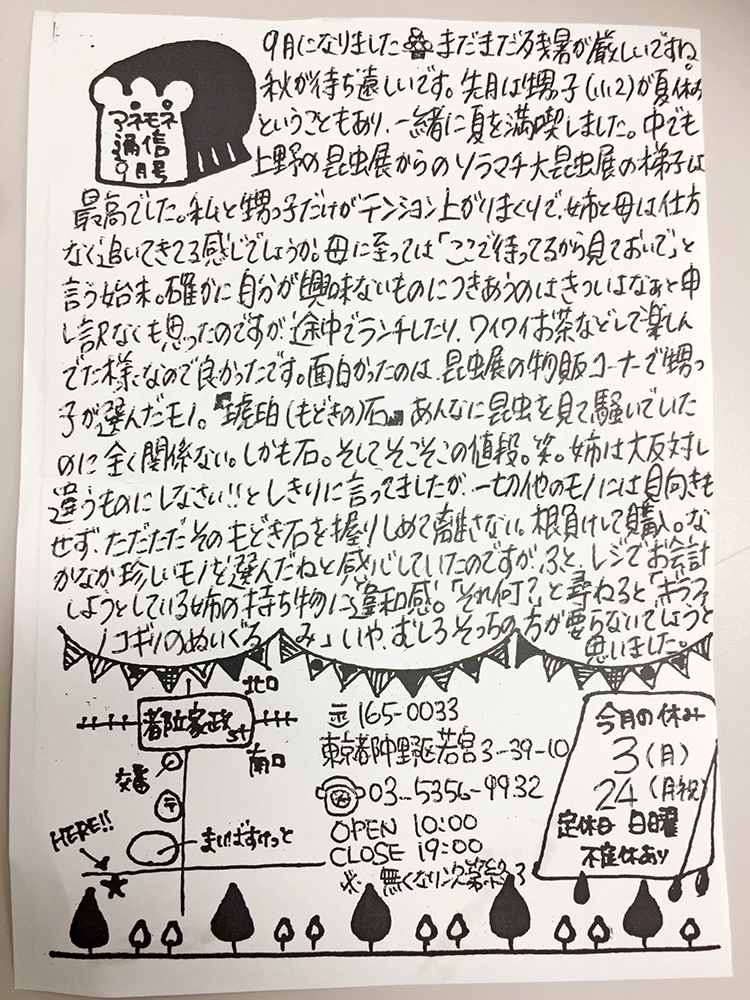 アネモネ
通信
9月号
9月になりました まだまだ残暑が厳しいですね。
秋が待ち遠しいです。先月は甥っ子(小2)が夏休み
ということもあり、一緒に夏を満喫しました。中でも
上野の昆虫展からのソラマチ大昆虫展の梯子は
最高でした。私と甥っ子だけがテンション上がりまくりで、姉と母は仕方
なく追いてきてる感じでしょうか。母に至っては「ここで待ってるから見ておいで」と
言う始末。確かに自分が興味ないものにつきあうのはきついよなぁと申
し訳なくも思ったのですが、途中でランチしたり、ワイワイお茶などして楽しん
でた様なので良かったです。面白かったのは、昆虫展の物販コーナーで甥っ
子が選んだモノ。『琥珀(もどきの)石』あんなに昆虫を見て騒いでいた
のに全く関係ない。しかも石。そしてそこそこの値段。笑。姉は大反対し
違うものにしなさい!!としきりに言ってましたが、一切他のモノには目向きも
せず、ただただそのもどき石を握りしめて離さない。根負けして購入。な
かなか珍しいモノを選んだねと感心していたのですが、ふと、レジでお会計
しようとしている姉の持ち物に違和感。「それ何?」と尋ねると「ギラファ
ノコギリのぬいぐるみ」いや、むしろそっちの方が要らないでしょうと
思いました。
北口
都立家政
st
南口
交番
〒
まいばすけっと
HERE!!
〒165-0033
東京都中野区若宮3-39-10
03-5356-9932
OPEN 10:00
CLOSE 19:00
※ 無くなり次第終了
今月の休み
3(月)
24(月祝)
定休日 日曜
不定休あり